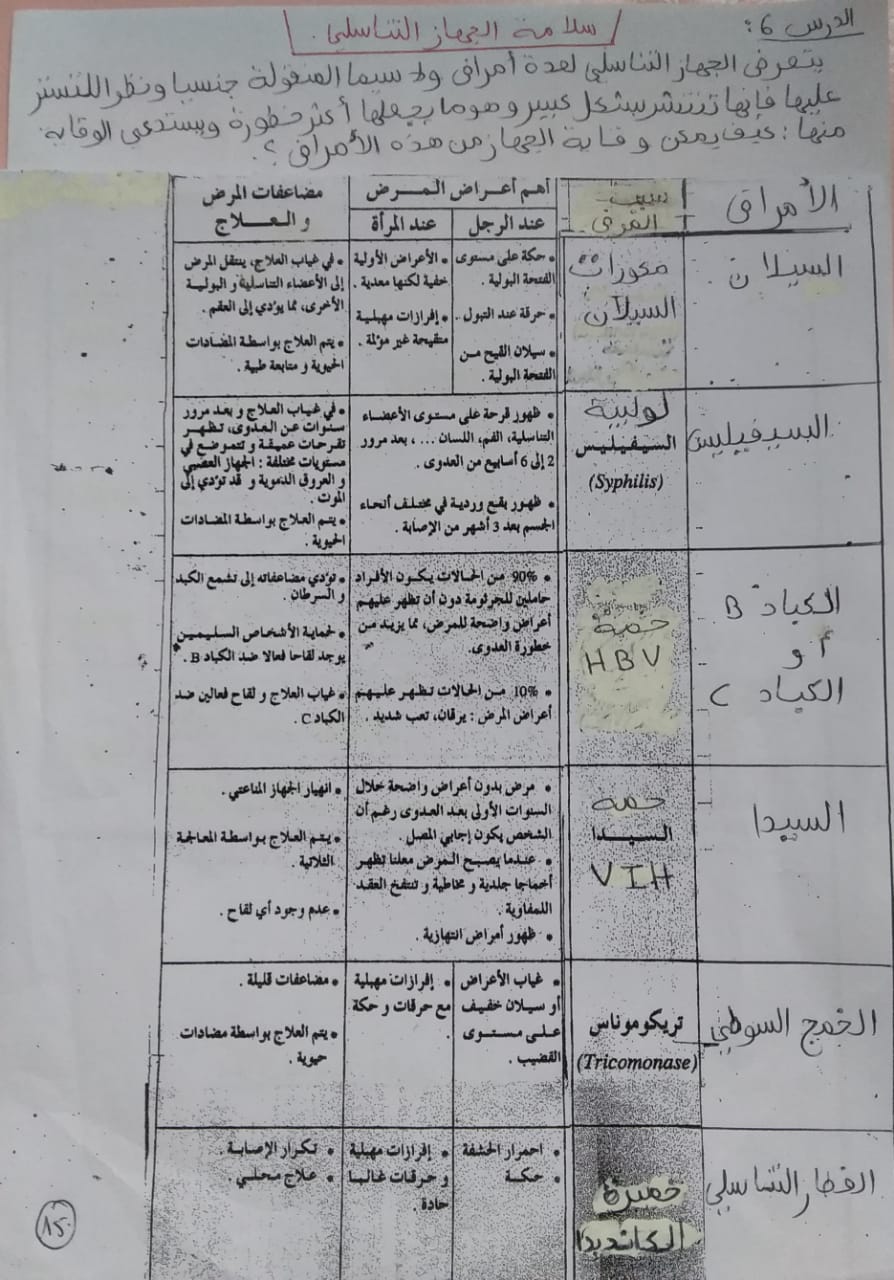 الدرس 6:
سلامة الجهاز التناسلي.
يتعرض الجهاز التناسلي لعدة أمراض ولا سيما المنقولة جنسيا ونظرا للتستر
عليها فإنها تنتشر بشكل كبير وهو ما يجعلها أكثر خطورة ويستدعي الوقاية
منها: كيف يمكن وقاية الجهاز من هذه الأمراض؟.
الأمراض
سبب
المرض
أهم أعراض المرض
عند الرجل
عند المرأة
مضاعفات المرض
و العلاج
السيلان
مكورات
السيلان
• حكة على مستوى
الفتحة البولية.
• حرقة عند التبول.
• سيلان القيح من
الفتحة البولية.
• الأعراض الأولية
خفية لكنها معدية.
• إفرازات مهبلية
متقيحة غير مؤلمة.
• في غياب العلاج، ينتقل المرض
إلى الأعضاء التناسلية و البولية
الأخرى، مما يؤدي إلى العقم.
• يتم العلاج بواسطة المضادات
الحيوية و متابعة طبية.
السيفيليس
لولبية
السيفيليس
(Syphilis)
• ظهور قرحة على مستوى الأعضاء
التناسلية، الفم، اللسان ...، بعد مرور
2 إلى 6 أسابيع من العدوى.
• ظهور بقع وردية في مختلف أنحاء
الجسم بعد 3 أشهر من الإصابة.
• في غياب العلاج و بعد مرور
سنوات عن العدوى، تظهر
تقرحات عميقة و تتموضع في
مستويات مختلفة: الجهاز العصبي
و العروق الدموية و قد تؤدي إلى
الموت.
• يتم العلاج بواسطة المضادات
الحيوية.
الكباد B
أو
الكباد C
حمة
HBV
• 90% من الحالات يكون الأفراد
حاملين للجرثومة دون أن تظهر عليهم
أعراض واضحة للمرض، مما يزيد من
خطورة العدوى.
• 10% من الحالات تظهر عليهم
أعراض المرض: يرقان، تعب شديد.
• تؤدي مضاعفاته إلى تشمع الكبد
و السرطان.
• لحماية الأشخاص السليمين
يوجد لقاحا فعالا ضد الكباد B.
• غياب العلاج و لقاح فعالين ضد
الكباد C.
السيدا
حمة
السيدا
VIH
• مرض بدون أعراض واضحة خلال
السنوات الأولى بعد العدوى رغم أن
الشخص يكون إجابي المصل.
• عندما يصبح المرض معلنا تظهر
أخماجا جلدية و مخاطية و تنتفخ العقد
اللمفاوية.
• ظهور أمراض انتهازية.
• انهيار الجهاز المناعتي.
• يتم العلاج بواسطة المعالجة
الثلاثية.
• عدم وجود أي لقاح.
الخمج السوطي
تريكوموناس
(Tricomonase)
• غياب الأعراض
أو سيلان خفيف
على مستوى
القضيب.
• إفرازات مهبلية
مع حرقات و حكة
.
• مضاعفات قليلة.
• يتم العلاج بواسطة مضادات
حيوية.
الفطار التناسلي
خميرة
الكانديدا
• احمرار الحشفة
• حكة
• إفرازات مهبلية
و حرقات غالبا
حادة.
• تكرار الإصابة.
• علاج محلي.
15